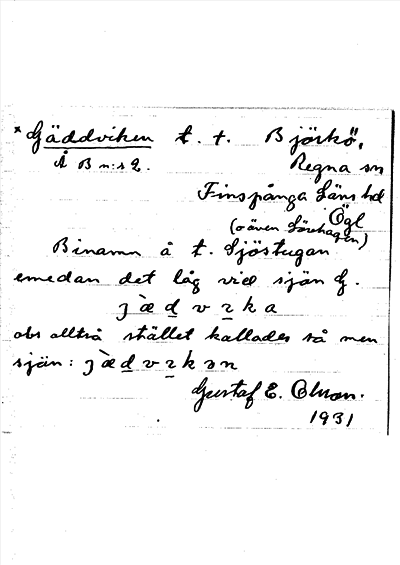 * Gäddviken t. t. Björkö,
Å B n:s 2. Regna sn
Finspånga Läns hd
Ögl
(o även Lövhagen)
Binamn å t. Sjöstugan
emedan det låg vid sjön G.
j æ̀ d v ɩ k a
obs alltså stället kallades så men
sjön: j æ̀ d v ɩ k ə n
Gustaf E. Olson.
1931